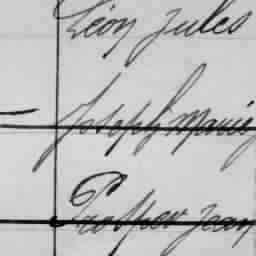 Léon Jules
Joseph Marie
Prosper Jean